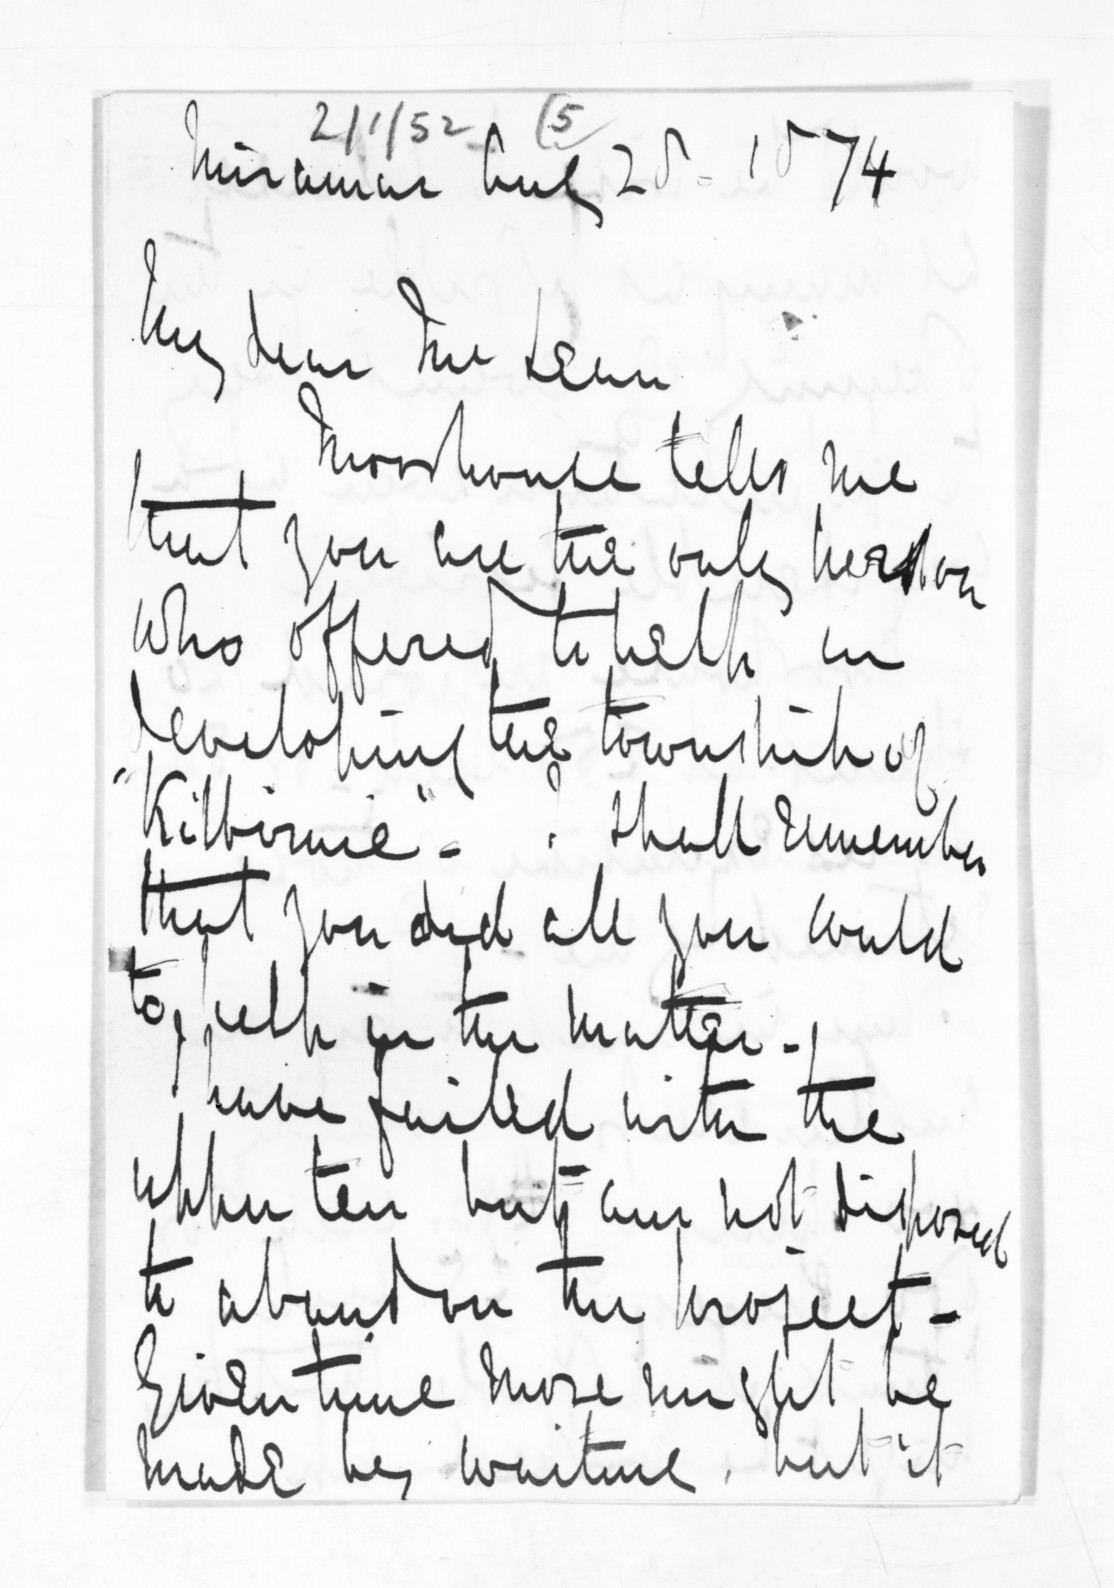 2/1/52 (5
Miramar Aug 28 - 1874
My dear McLean
Moorhouse tells me
that you are the only person
who offered to help in
developing the township of
"Kilbirnie" - I shall remember
that you did all you could
to help in the matter. -
I have failed with the
upper ten but am not disposed
to abandon the project -
Given time more might be
made by waiting, but it